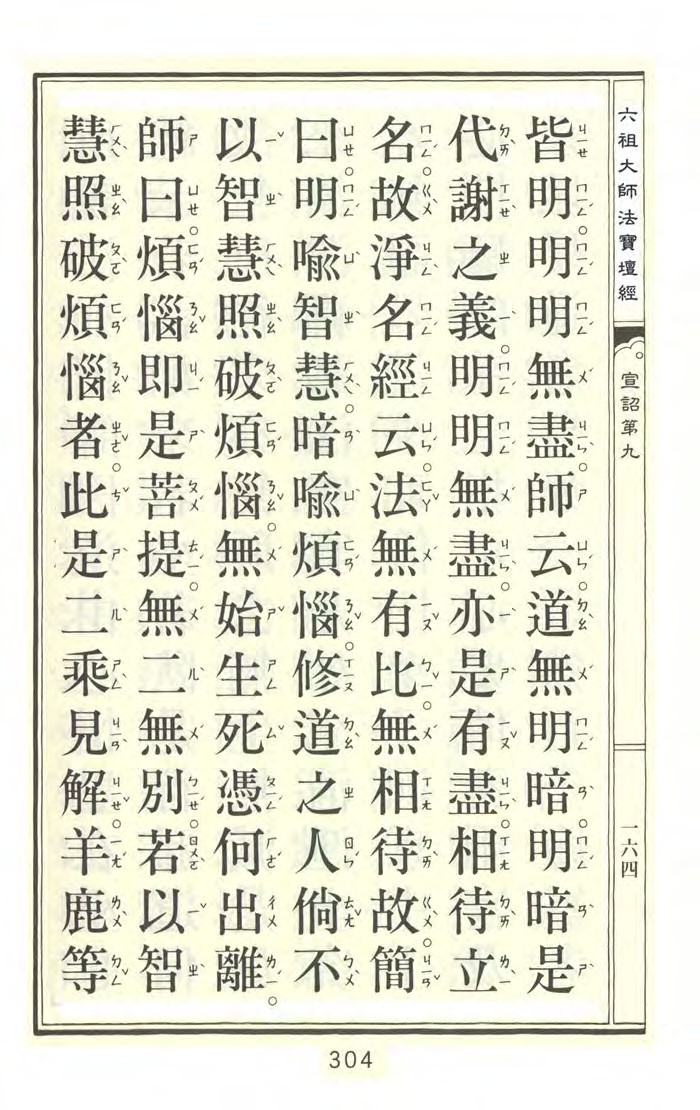 六祖大師法寶壇經
宣詔第九
一六四
皆明。明明無盡。師云。道無明暗。明暗是
代謝之義。明明無盡。亦是有盡。相待立
名。故淨名經云。法無有比。無相待故。簡
曰。明喻智慧。暗喻煩惱。修道之人。倘不
以智慧照破煩惱。無始生死。憑何出離。
師曰。煩惱即是菩提。無二無別。若以智
慧照破煩惱者。此是二乘見解。羊鹿等
304